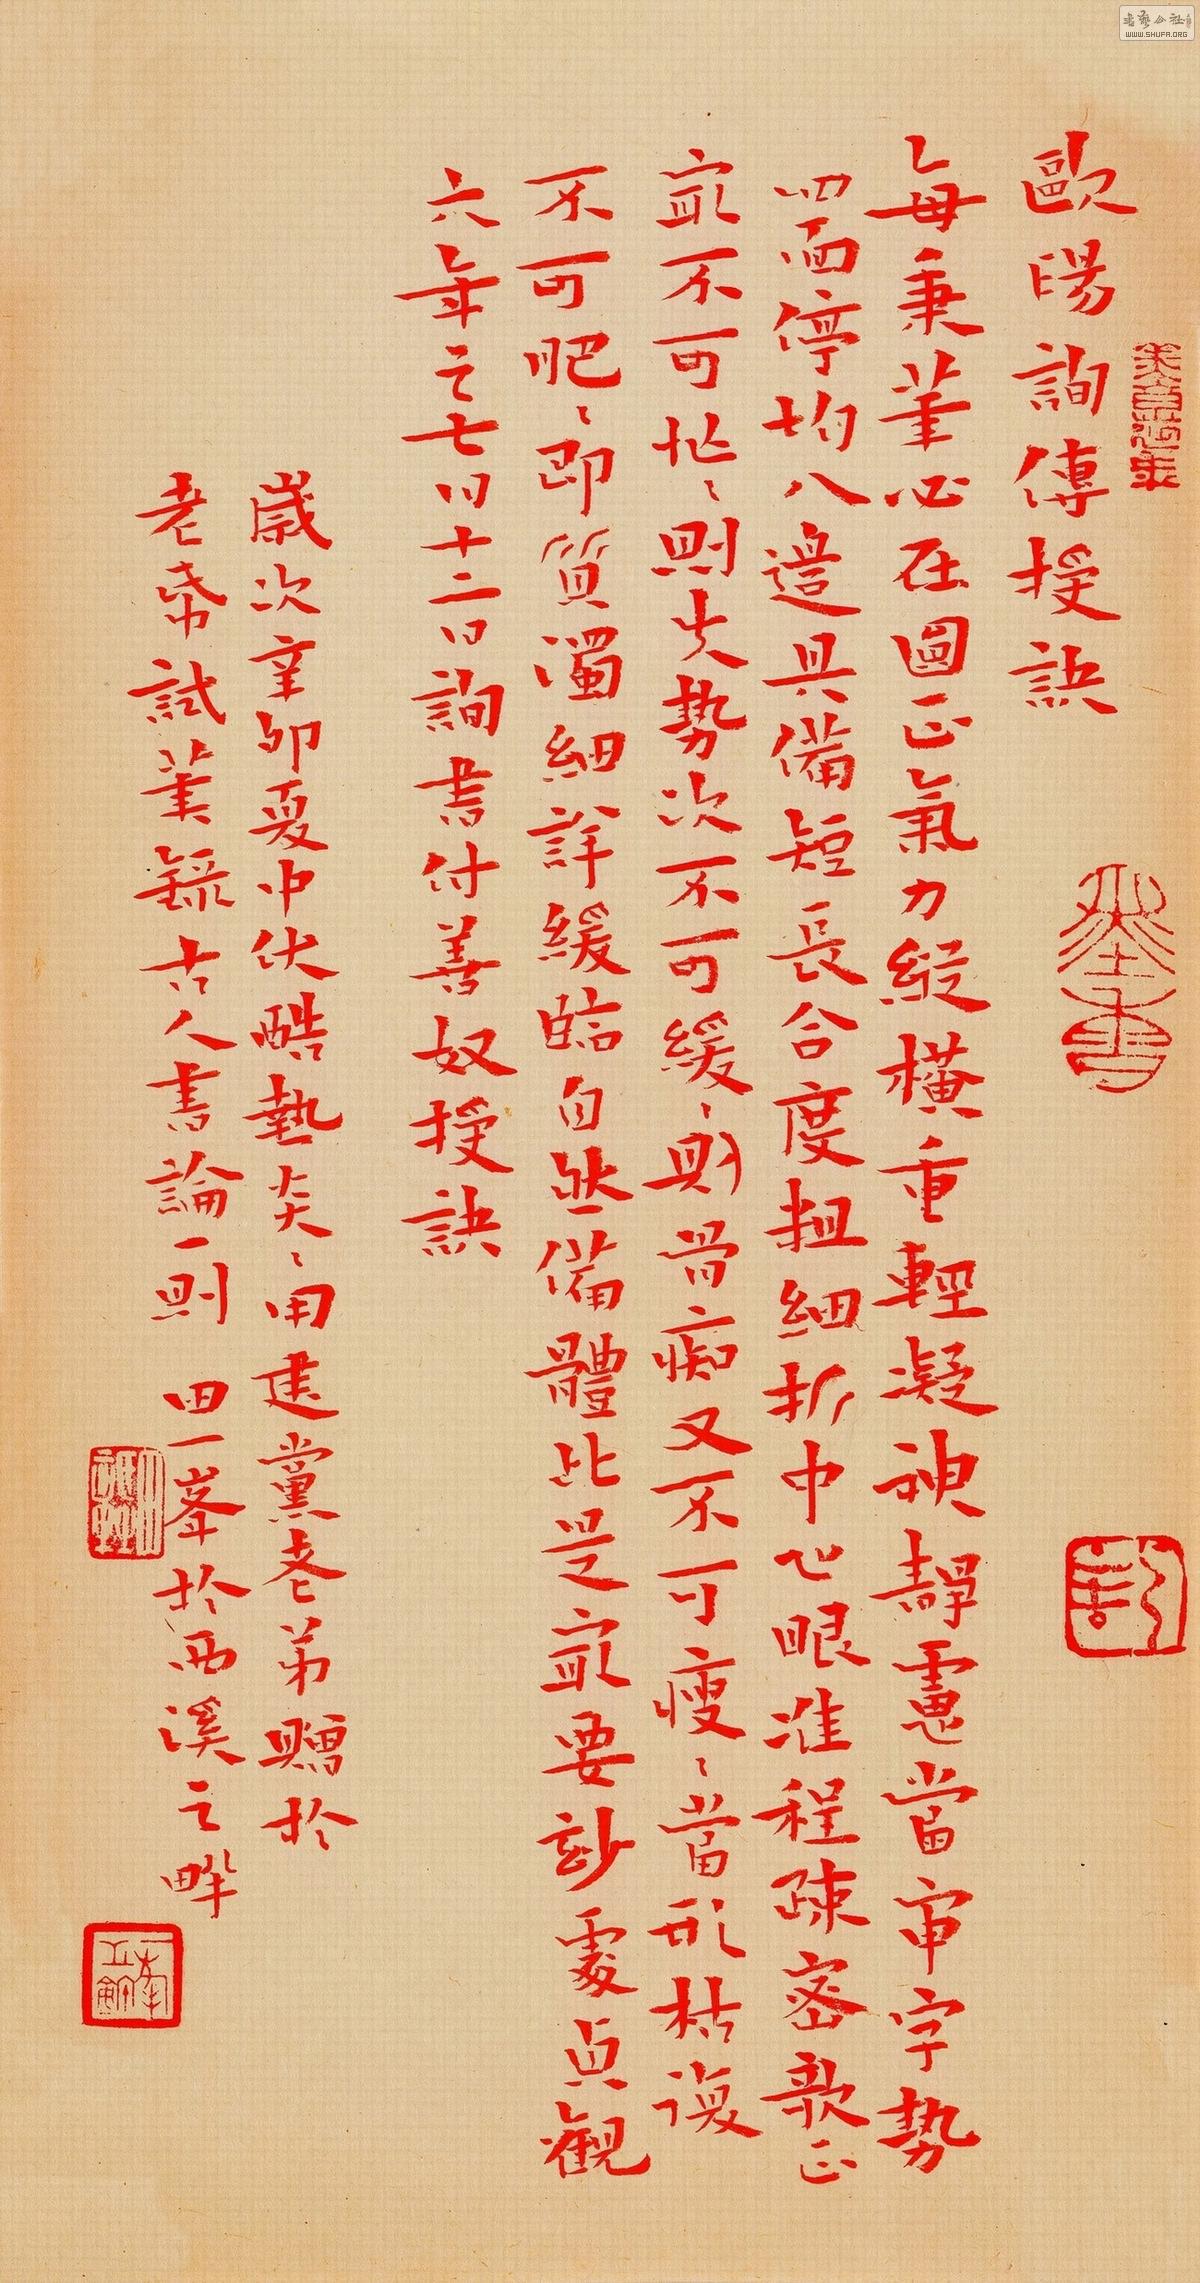 歐陽詢傳授訣
每秉筆必在圓正氣力縱橫重輕凝神靜慮當審字勢
四面停均八邊具備短長合度粗細折中心眼准程疎密欹正
最不可忙〻則失勢次不可緩〻則骨痴又不可瘦〻當形枯復
不可肥〻即質濁細詳緩臨自然備體此是最要妙處貞觀
六年之七月十二日詢書付善奴授訣
歲次辛卯夏中伏酷熱炎〻用建黨老弟贈於
老帋試筆錄古人書論一則 田一峯於西溪之畔
WWW.SHUFA.ORG